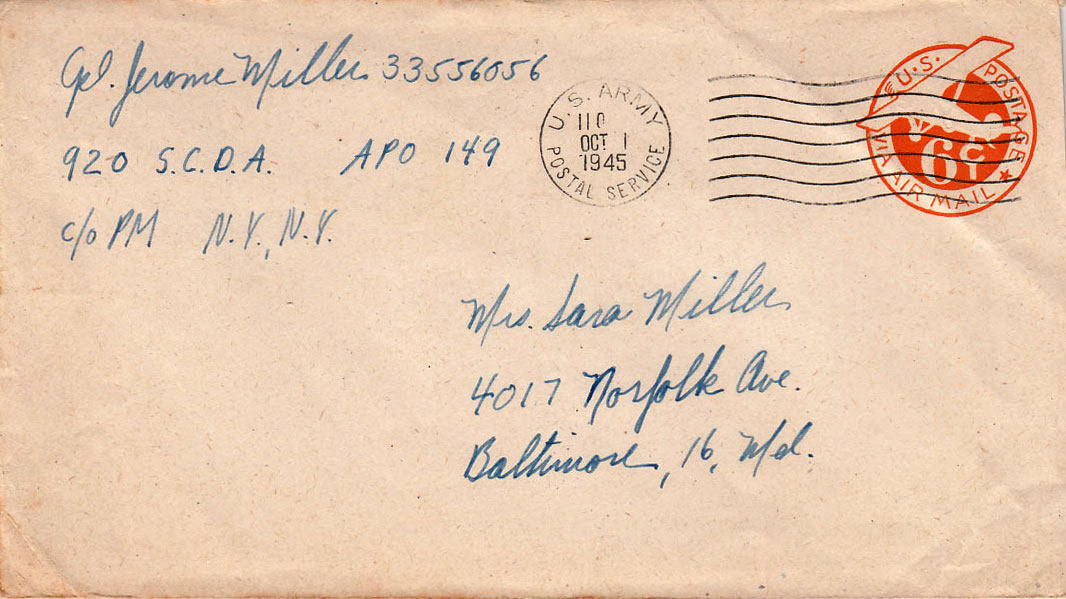 Cpl. Jerome Miller 33556056
920 S.C.D.A. APO 149
c/o PM N.Y., N.Y.
U.S. ARMY
110
OCT 1
1945
POSTAL SERVICE
U.S. POSTAGE
6¢
VIA AIR MAIL
Mrs. Sara Miller
4017 Norfolk Ave.
Baltimore, 16, Md.